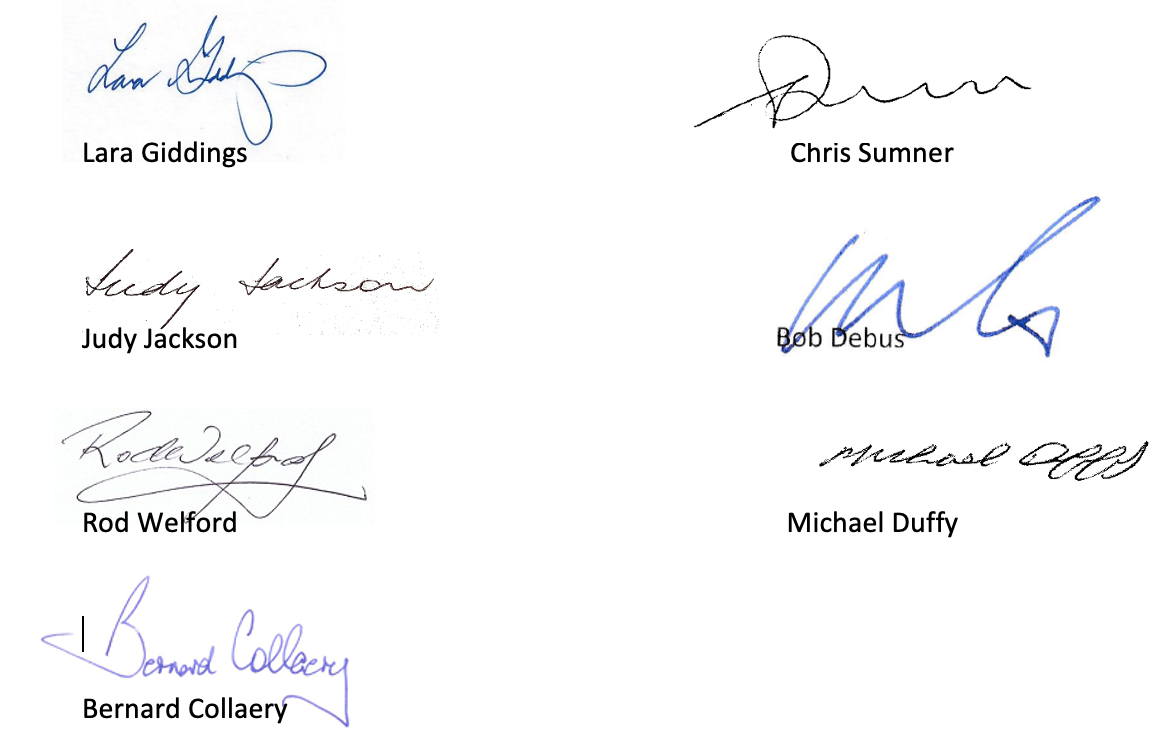 Lara Giddings
Lara Giddings
Chris Sumner
Judy Jackson
Judy Jackson
Bob Debus
Rod Welford
Rod Welford
Michael Duffy
Michael Duffy
Bernard Collaery
Bernard Collaery